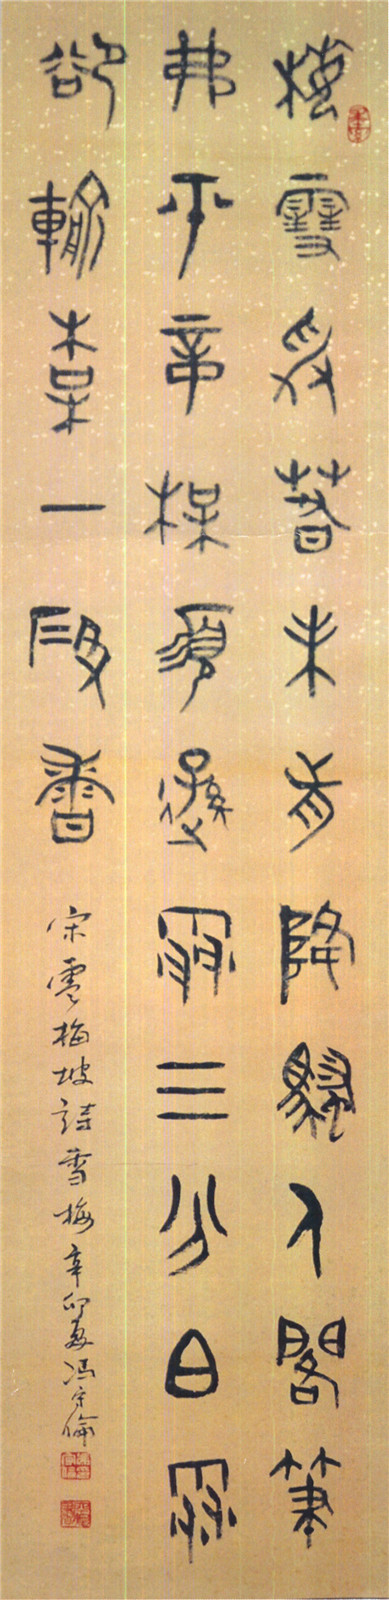 梅雪爭春未肯降騷人閣筆
弗平章梅須遜雪三分白雪
卻輸梅一段香
宋盧梅坡詩雪梅 辛卯夏 馮守倫